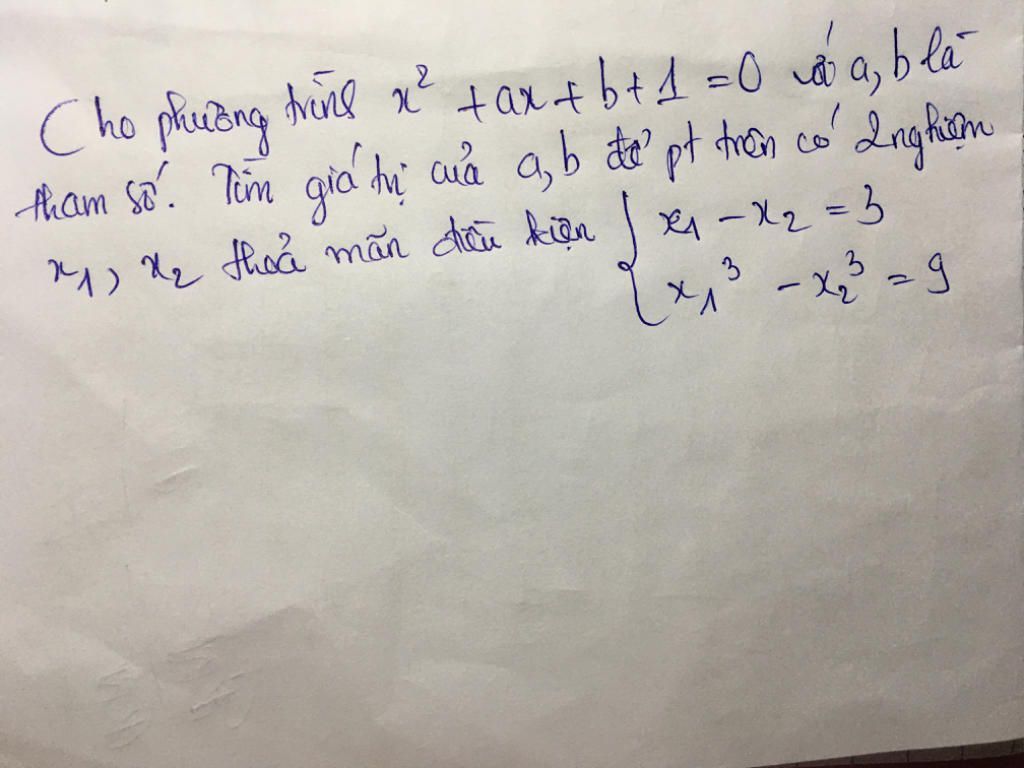 Cho phương trình x² + ax + b + 1 = 0 với a, b là
tham số. Tìm giá trị của a, b để pt trên có 2 nghiệm
x₁, x₂ thoả mãn điều kiện { x₁ - x₂ = 3
x₁³ - x₂³ = 9